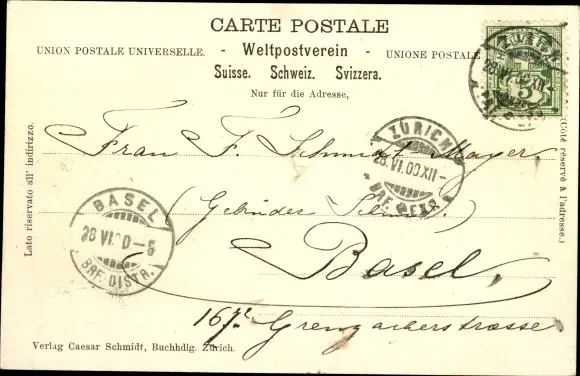 CARTE POSTALE
UNION POSTALE UNIVERSELLE. - Weltpostverein - UNIONE POSTALE
Suisse. Schweiz. Svizzera.
Nur für die Adresse,
Lato riservato all' indirizzo.
(Côté réservé à l'adresse.)
ZÜRICH
28.VI.00.XII-
BRF. EXP.
Frau F. Schmidt Mayer.
BASEL
28 VI. 0-5
BRF. DISTR.
(Gebrüder
Basel.
167. Grenzacherstrasse
Verlag Caesar Schmidt, Buchhdlg. Zürich.
5